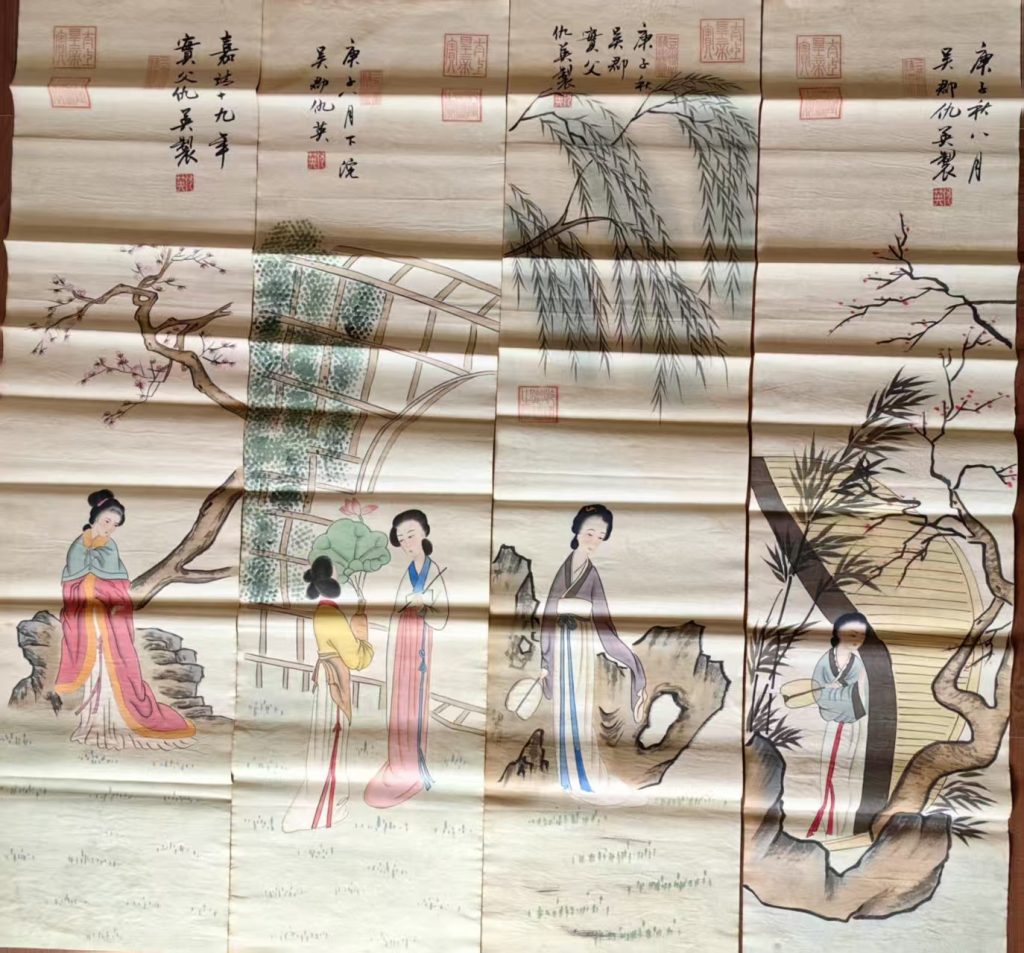 庚子秋八月
吳郡仇英製
庚子秋
吳郡
實父
仇英製
庚子八月下浣
吳郡仇英
嘉靖十九年
實父仇英製